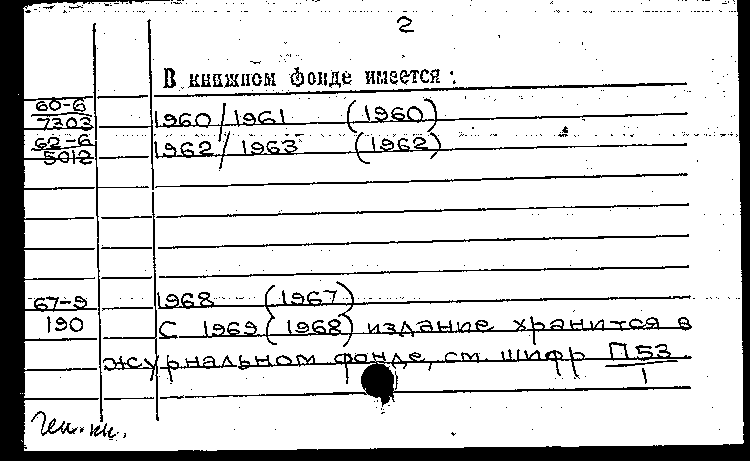 2
В книжном фонде имеется:
60-6
7303 1960/1961 (1960)
62-6
5012 1962/1963 (1962)
67-9 1968 (1967)
190 С 1969 (1968) издание хранится в
журнальном фонде, ст. шифр П53
1